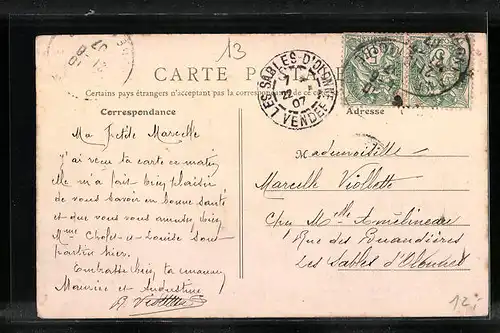 13
CARTE POSTALE
Certains pays étrangers n'acceptent pas la correspondance de ce
LES SABLES D'OLONNE
22
07
VENDEE
Correspondance
Adresse
Ma Petite Marcelle
J'ai reçu ta carte ce matin
elle m'a fait bien plaisir
de vous savoir en bonne santé
et que vous vous amusez bien
Mme Cholet et Louise sont
parties hier.
Embrasse bien ta maman
Maurice et Augustine
Mademoiselle
Marcelle Viollette
Chez Mlle Amélineau
Rue des
Les Sables d'Olonnes
12,-